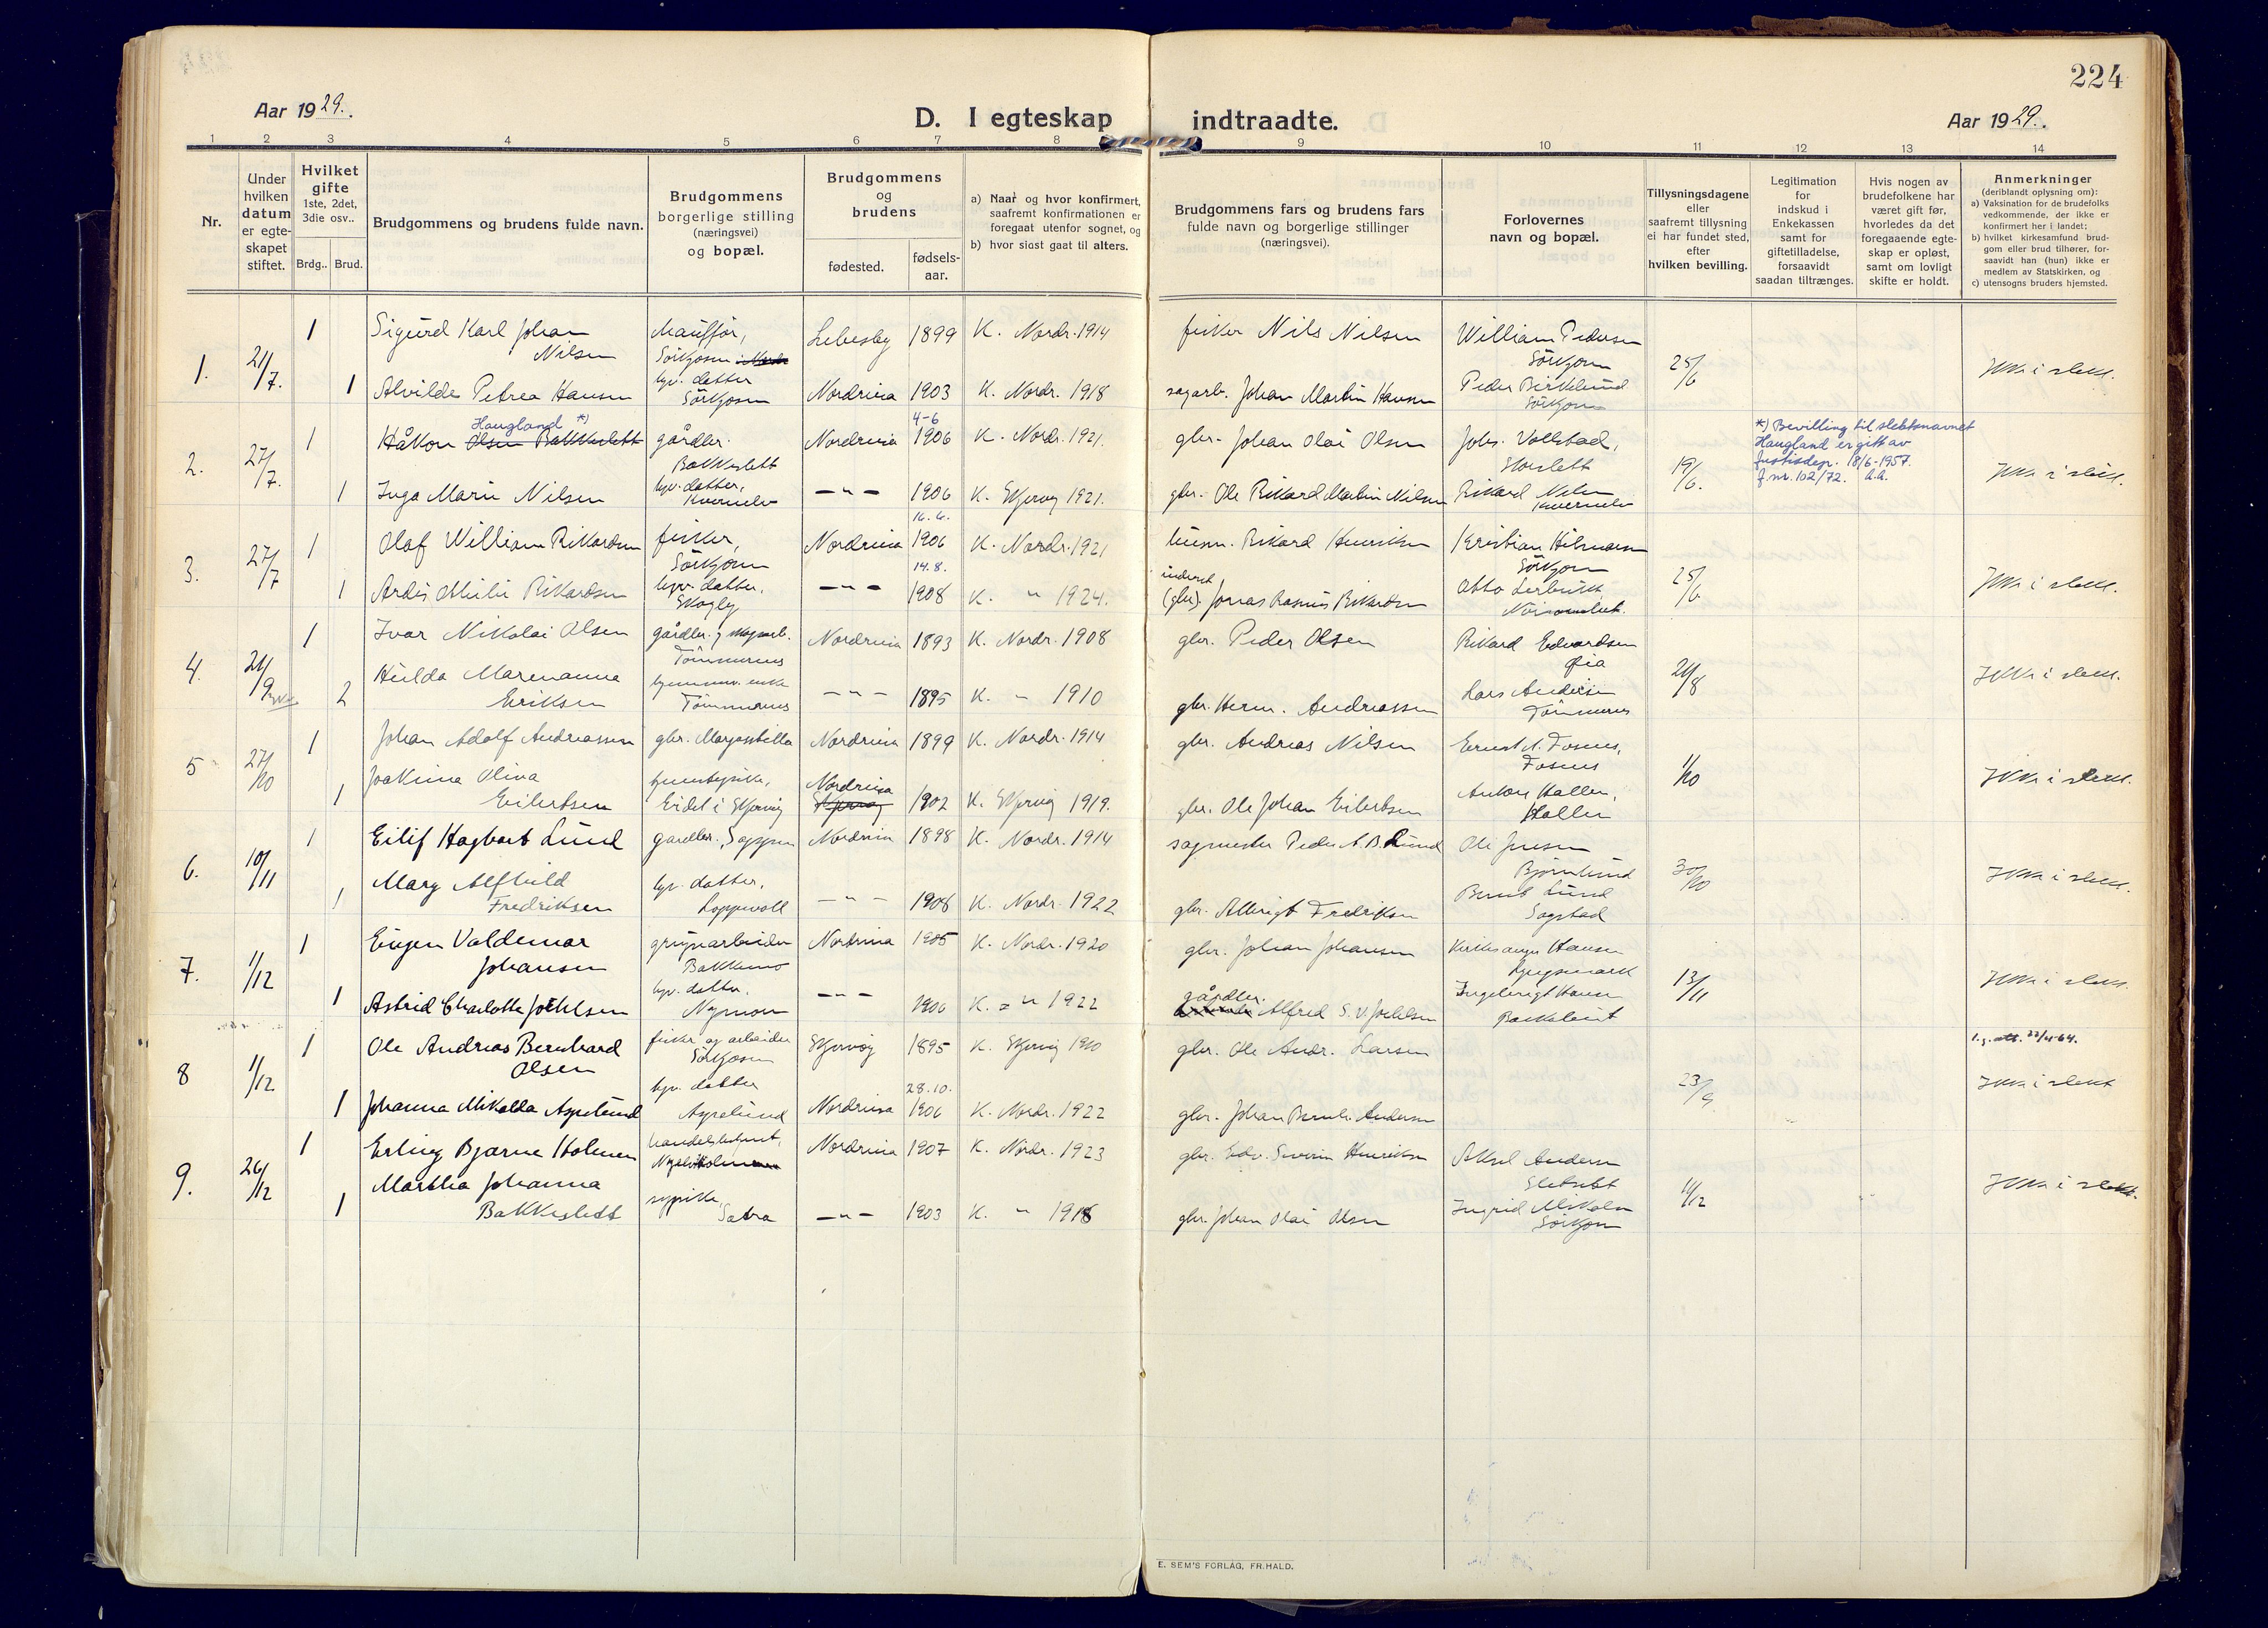 224
Aar 1929.
D. I egteskap indtraadte.
Aar 1929.
1 2 3 4 5 6 7 8 9 10 11 12 13 14
Nr.
Under hvilken datum er egte-skapet stiftet.
Hvilket gifte 1ste, 2det, 3die osv..
Brdg.. Brud.
Brudgommens og brudens fulde navn.
Brudgommens borgerlige stilling (næringsvei) og bopæl.
Brudgommens og brudens
fødested.
fødsels-aar.
a) Naar og hvor konfirmert, saafremt konfirmationen er foregaat utenfor sognet, og
b) hvor sidst gaat til alters.
Brudgommens fars og brudens fars fulde navn og borgerlige stillinger (næringsvei).
Forlovernes navn og bopæl.
Tillysningsdagene eller saafremt tillysning ei har fundet sted, efter hvilken bevilling.
Legitimation for indskud i Enkekassen samt for giftetilladelse, forsaavidt saadan tiltrænges.
Hvis nogen av brudefolkene har været gift før, hvorledes da det foregaaende egte-skap er opløst, samt om lovligt skifte er holdt.
Anmerkninger
(deriblandt oplysning om):
a) Vaksination for de brudefolks vedkommende, der ikke er konfirmert her i landet;
b) hvilket kirkesamfund brud-gom eller brud tilhører, for-saavidt han (hun) ikke er medlem av Statskirken, og
c) utensogns bruders hjemsted.
1. 21/7. 1 Sigurd Karl Johan Nilsen
Sörkjosen
Lebesby 1899 K. Nordr. 1914
fisker Nils Nilsen
William Pedersen Sörkjosen
25/6
Ikke i slekt.
1 Alvilde Petrea Hansen
hjv. datter Sörkjosen
Nordreisa 1903 K. Nordr. 1918
sagarb. Johan Martin Hansen
Peder Birkelund Sörkjosen
2. 27/7. 1 Håkon Olsen Bakkeslett
Haugland *)
gårdbr. Bakkeslett
Nordreisa 4-6 1906 K. Nordr. 1921.
gbr. Johan Olai Olsen
Johs. Vollstad, Storslett
19/6.
*) Bevilling til slektsnavnet
Haugland er gitt av
Justisdep. 18/6-1957.
J.nr. 102/72.
Ikke i slekt.
1 Inga Marie Nilsen
hjv. datter, Kvernelv
— " — 1906 K. Skjervøy 1921.
gbr. Ole Rikard Martin Nilsen
Rikard Nilsen Kvernelv
3. 27/7 1 Olaf William Rikardsen
fisker, Sörkjosen
Nordreisa 16.6. 1906 K. Nordr. 1921
Rikard Henriksen
Kristian Hilmarsen Sörkjosen
25/6
Ikke i slekt.
1 Ardis Rikardsen
hjv. datter. Skogly
— " — 14.8. 1908 K. " 1924.
(gbr.) Jonas Rasmus Rikardsen
Otto
4. 21/9 1 Ivar Nikolai Olsen
gårdbr.
Nordreisa 1893 K. Nordr. 1908
gbr. Peder Olsen
Rikard Edvardsen
21/8
Ikke i slekt.
2 Hulda Marenanna Eriksen
enke
— " — 1895 K. " 1910
gbr. Herm. Andreassen
Lars Andersen
5 27/10 1 Johan Adolf Andreassen
gbr.
Nordreisa 1899 K. Nordr. 1914
gbr. Andreas Nilsen
Fosnes
1/10
Ikke i slekt.
1 Joakima Oliva Eilertsen
Eidet i Skjervøy
Nordreisa Skjervøy 1902 K. Skjervøy 1919.
gbr. Ole Johan Eilertsen
Anton Hallen, Hallen
6. 10/11 1 Eilif Hagbart Lund
gardbr.
Nordreisa 1898 K. Nordr. 1914
sagmester Peder A. B. Lund
Ole Jensen Bjørnlund
30/10
Ikke i slekt.
1 Mary Alfhild Fredriksen
hjv. datter, Loppevoll
— " — 1908 K. Nordr. 1922
gbr. Albrigt Fredriksen
Bernt Lund Sagstad
7. 1/12 1 Eugen Valdemar Johansen
Bakkemo
Nordreisa 1905 K. Nordr. 1920
gbr. Johan Johansen
Hansen
13/11
Ikke i slekt.
1 Astrid Charlotte Joelsen
hjv. datter. Nymoen
— " — 1906 K. " 1922
gårdbr. Alfred S. V. Joelsen
Ingebrigt Hansen
8 1/12 1 Ole Andreas Bernhard Olsen
fisker og arbeider Sörkjosen
Skjervøy 1895 K. Skjervøy 1910
gbr. Ole Andr. Larsen
23/9
Ikke i slekt
1 Johanna Mikalda Aspelund
hjv. datter Aspelund
Nordreisa 28.10. 1906 K. Nordr. 1922
gbr. Johan Bernh. Andersen
9. 26/12 1 Erling Bjarne Holmen
Nordreisa 1907 K. Nordr. 1923
gbr. Edv. Severin Henriksen
Aksel Andersen
11/12
Ikke i slekt.
1 Martha Johanna Bakkeslett
sypike Sætra
— " — 1903 K. " 1918
gbr. Johan Olai Olsen
Ingrid Mikalsen Sörkjosen
E. SEM'S FORLAG, FR.HALD.